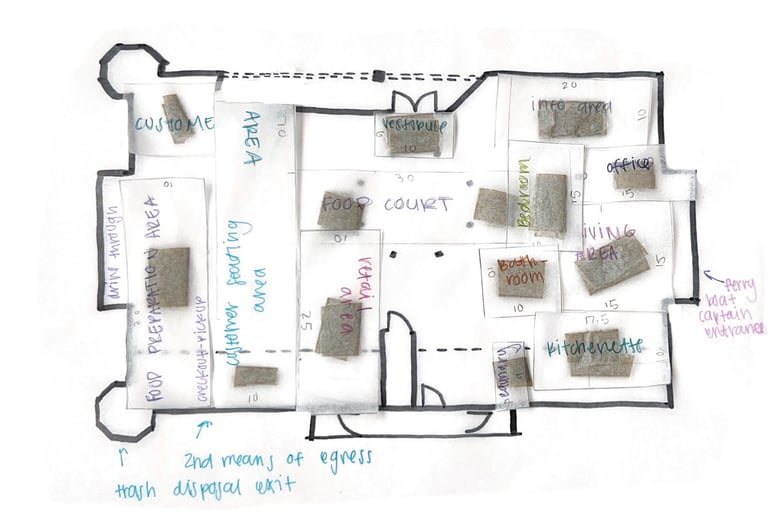 20
info area
10
CUSTOME
AREA
10
vestibule
6
10
office
15
30
FOOD COURT
bedroom
15
drive through
10
FOOD PREPARATION AREA
checkout-pickup
customer seating
area
10
10
retail
area
25
LIVING
AREA
15
15
Bath-
room
10
10
17.5
kitchenette
10
laundry
ferry
boat
captain
entrance
2nd means of egress
trash disposal exit